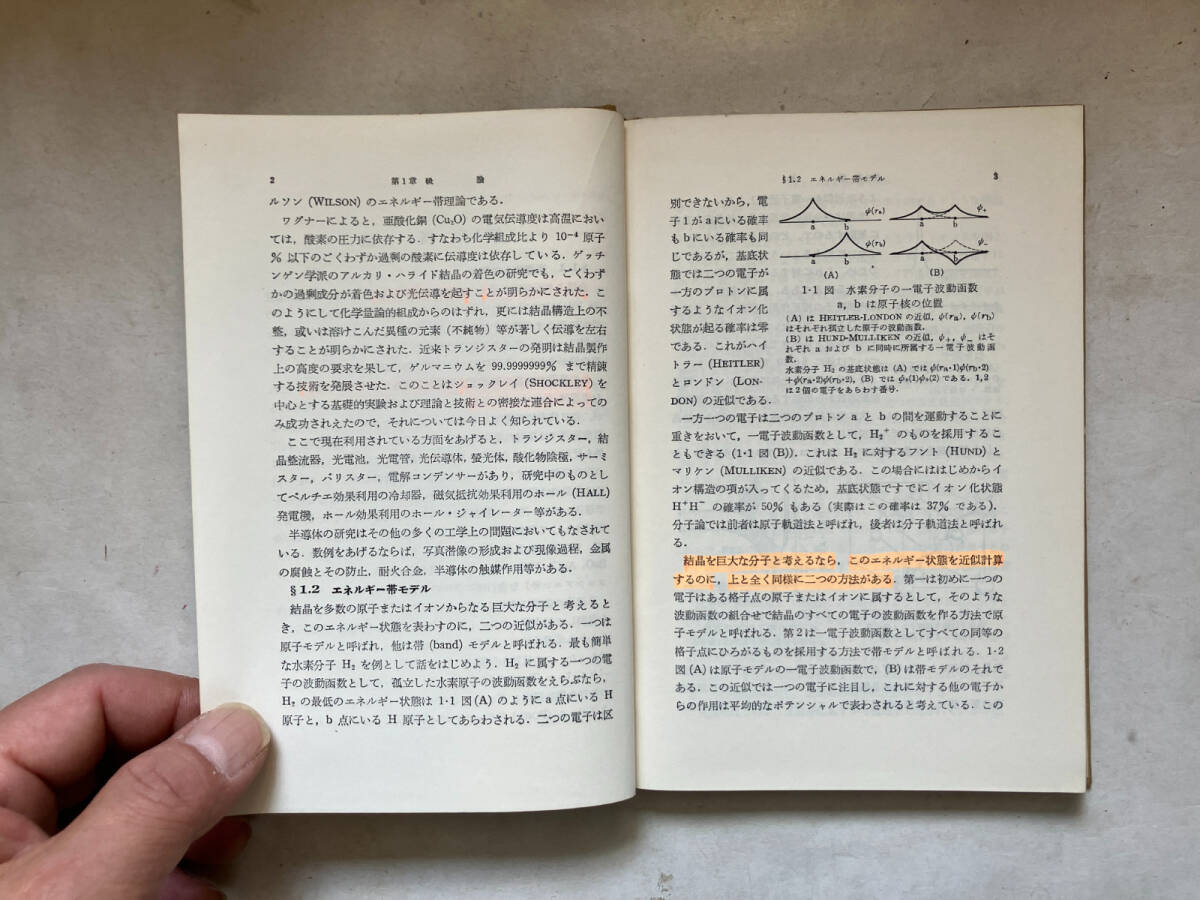 2 第1章 概 論
ルソン (WILSON) のエネルギー帯理論である.
ワグナーによると，亜酸化銅 (Cu₂O) の電気伝導度は高温におい
ては，酸素の圧力に依存する．すなわち化学組成比より 10⁻⁴ 原子
% 以下のごくわずか過剰の酸素に伝導度は依存している．ゲッチ
ンゲン学派のアルカリ・ハライド結晶の着色の研究でも，ごくわず
かの過剰成分が着色および光伝導を起すことが明らかにされた．こ
のようにして化学量論的組成からのはずれ，更には結晶構造上の不
整，或いは溶けこんだ異種の元素（不純物）等が著しく伝導を左右
することが明らかにされた．近来トランジスターの発明は結晶製作
上の高度の要求を果して，ゲルマニウムを 99.9999999% まで精錬
する技術を発展させた．このことはショックレイ (SHOCKLEY) を
中心とする基礎的実験および理論と技術との密接な連合によっての
み成功されえたので，それについては今日よく知られている．
ここで現在利用されている方面をあげると，トランジスター，結
晶整流器，光電池，光電管，光伝導体，螢光体，酸化物陰極，サーミ
スター，バリスター，電解コンデンサーがあり，研究中のものとし
てペルチエ効果利用の冷却器，磁気抵抗効果利用のホール (HALL)
発電機，ホール効果利用のホール・ジャイレーター等がある．
半導体の研究はその他の多くの工学上の問題においてもなされて
いる．数例をあげるならば，写真潜像の形成および現像過程，金属
の腐蝕とその防止，耐火合金，半導体の触媒作用等がある．
§1.2 エネルギー帯モデル
結晶を多数の原子またはイオンからなる巨大な分子と考えると
き，このエネルギー状態を表わすのに，二つの近似がある．一つは
原子モデルと呼ばれ，他は帯 (band) モデルと呼ばれる．最も簡単
な水素分子 H₂ を例として話をはじめよう．H₂ に属する一つの電
子の波動函数として，孤立した水素原子の波動函数をえらぶなら，
H₂ の最低のエネルギー状態は 1·1 図 (A) のように a 点にいる H
原子と，b 点にいる H 原子としてあらわされる．二つの電子は区
§1.2 エネルギー帯モデル 3
別できないから，電
子1がaにいる確率
もbにいる確率も同
じであるが，基底状
態では二つの電子が
一方のプロトンに属
するようなイオン化
状態が起る確率は零
である．これがハイ
トラー (HEITLER)
とロンドン (LON-
DON) の近似である．
a b ψ(rₐ) a b ψ₊
a b ψ(r_b) a b ψ₋
(A) (B)
1·1 図 水素分子の一電子波動函数
a, b は原子核の位置
(A) は HEITLER-LONDON の近似，ψ(rₐ), ψ(r_b)
はそれぞれ孤立した原子の波動函数．
(B) は HUND-MULLIKEN の近似，ψ₊, ψ₋ はそ
れぞれ a および b に同時に所属する一電子波動函
数．
水素分子 H₂ の基底状態は (A) では ψ(rₐ·1)ψ(r_b·2)
+ψ(rₐ·2)ψ(r_b·2)，(B) では ψ₊(1)ψ₊(2) である．1, 2
は2個の電子をあらわす番号．
一方一つの電子は二つのプロトン a と b の間を運動することに
重きをおいて，一電子波動函数として，H₂⁺ のものを採用するこ
ともできる (1·1 図 (B))．これは H₂ に対するフント (HUND) と
マリケン (MULLIKEN) の近似である．この場合にははじめからイ
オン構造の項が入ってくるため，基底状態ですでにイオン化状態
H⁺H⁻ の確率が 50% もある（実際はこの確率は 37% である）．
分子論では前者は原子軌道法と呼ばれ，後者は分子軌道法と呼ばれ
る．
結晶を巨大な分子と考えるなら，このエネルギー状態を近似計算
するのに，上と全く同様に二つの方法がある．第一は初めに一つの
電子はある格子点の原子またはイオンに属するとして，そのような
波動函数の組合せで結晶のすべての電子の波動函数を作る方法で原
子モデルと呼ばれる．第2は一電子波動函数としてすべての同等の
格子点にひろがるものを採用する方法で帯モデルと呼ばれる．1·2
図 (A) は原子モデルの一電子波動函数で，(B) は帯モデルのそれで
ある．この近似では一つの電子に注目し，これに対する他の電子か
らの作用は平均的なポテンシャルで表わされると考えている．この